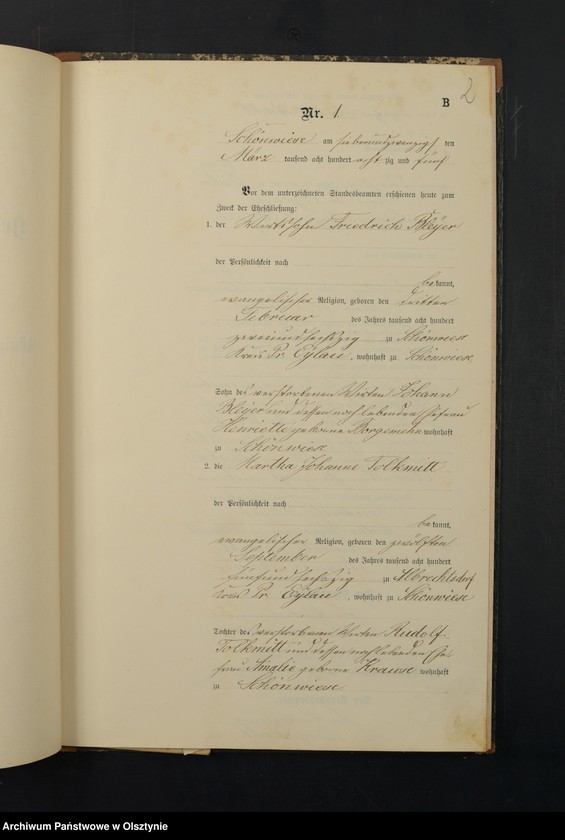 2
B
Nr. 1
Schönwiese am siebenundzwanzigsten
März tausend acht hundert achtzig und fünf
Vor dem unterzeichneten Standesbeamten erschienen heute zum
Zweck der Eheschließung:
1. der Wirtssohn Friedrich Bleyer
der Persönlichkeit nach
bekannt,
evangelischer Religion, geboren den dritten
Februar des Jahres tausend acht hundert
zweiundsechszig zu Schönwiese
Kreis Pr. Eylau, wohnhaft zu Schönwiese
Sohn des verstorbenen Wirten Johann
Bleyer und dessen noch lebenden Ehefrau
Henriette geborne wohnhaft
zu Schönwiese
2. die Martha Johanne Tolkmitt
der Persönlichkeit nach
bekannt,
evangelischer Religion, geboren den zwölften
September des Jahres tausend acht hundert
fünfundsechszig zu Albrechtsdorf
Kreis Pr. Eylau, wohnhaft zu Schönwiese
Tochter des verstorbenen Wirten Rudolf
Tolkmitt und dessen noch lebenden Ehe-
frau Amalie geborne Krause wohnhaft
zu Schönwiese
Archiwum Państwowe w Olsztynie